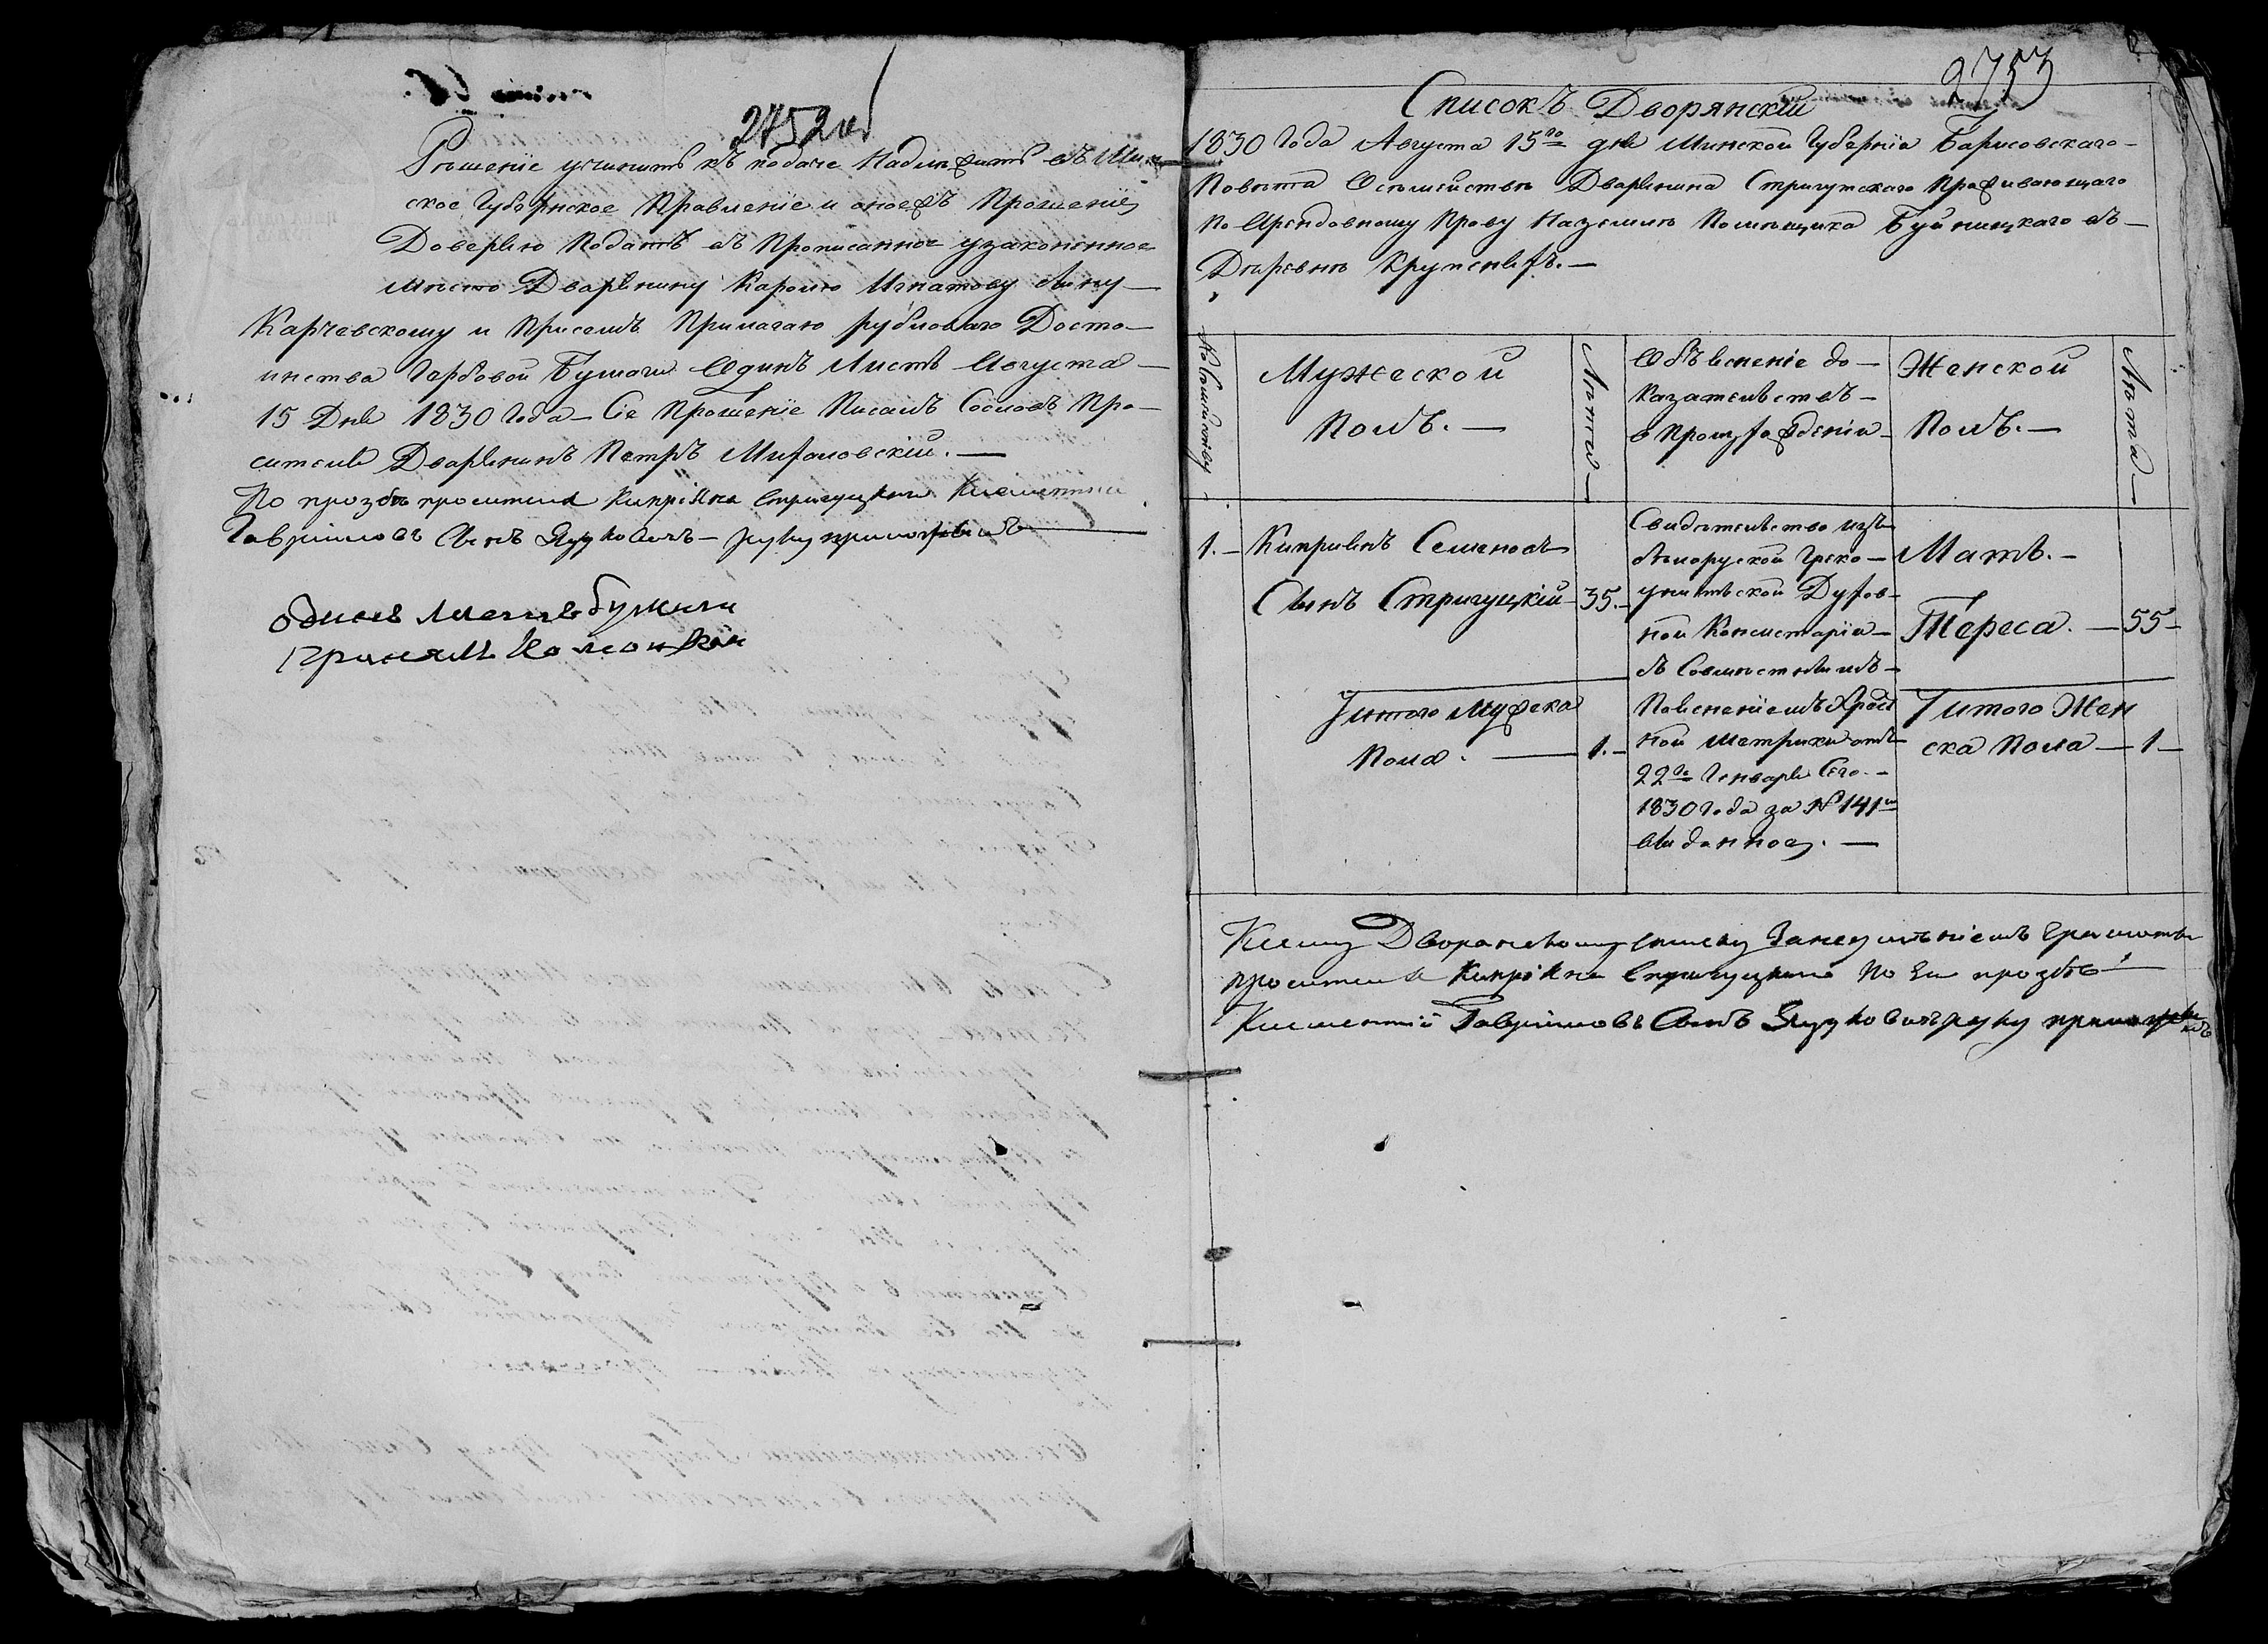 2752об
Ръшеніе учинить къ подаче Надлежитъ въ Мин
ское Губернское Правленіе и оноежъ Прошеніе
Доверяю Подать въ Прописанное узаконенное
место Дварянину Каролю Игнатову Сыну
Карчевскому и Присемъ Прилагаю рублеваго Досто—
инства Гербовой Бумаги Одинъ Листъ Августа
15 Дня 1830 Года — Се Прошеніе Писалъ Сословъ Про—
сителя Дварянинъ Петръ Михаловскій. —
По прозбѣ просителя Кипріяна Стригуцкаго Клементій
Гавриіловъ Сынъ Яцковичъ — руку приложилъ
одинъ листъ бумаги
Принялъ
2753
Списокъ Дворянскій
1830 Года Августа 15го дня Минской Губерніи Барисовскаго —
Повѣта О семействѣ Дварянина Стригутскаго Проживающаго
По Арендовному Праву Наземли Помѣщика Буйницкаго въ —
Деревнѣ Крупеняхъ. —
Мужеской
Полъ. —
Лѣта —
Объясненіе до —
казательствъ —
о произхождении —
Женской
Полъ. —
Лѣта —
1. — Киприянъ Семеновъ
Сынъ Стригуцкій — 35. —
Свидѣтельство изъ
бѣлоруской Греко —
унитской Духов —
ной Консисторіи —
съ Совместнымъ —
Поясненіемъ Крест
ной Метрики отъ
22го Генваря Сего. —
1830 Года за № 141м
выданное. —
Мать. —
Тереса. — 55 —
Итого Мужска
Пола. — 1. —
Итого Жен
ска Пола — 1 —
Ксему Дворянскому списку Занеумѣніемъ Грамоты
просителя Кипріяна Стригуцкаго По Его прозбѣ
Клементій Гавриіловъ Сынъ Яцковичъ руку приложилъ